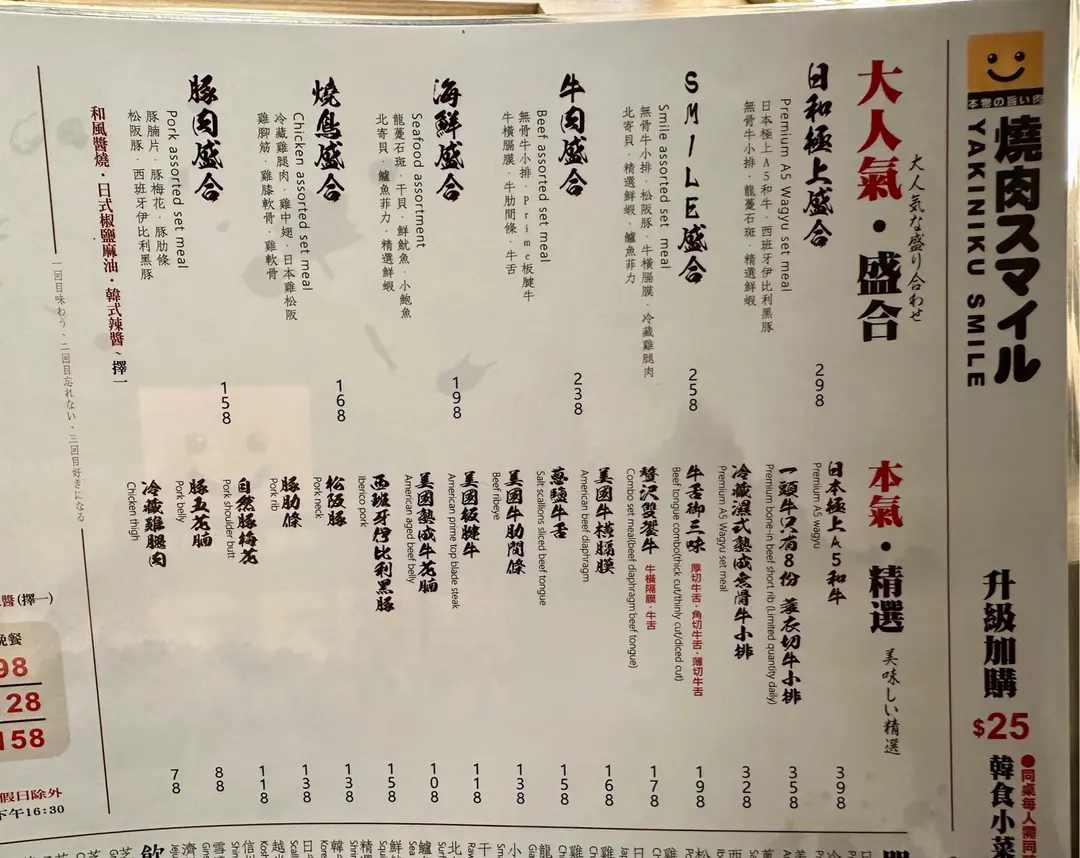 本物の旨い肉
燒肉スマイル
YAKINIKU SMILE
升級加購
$25
韓食小菜
大人氣・盛合
大人気な盛り合わせ
日和極上盛合
298
Premium A5 Wagyu set meal
日本極上A5和牛・西班牙伊比利黑豚
無骨牛小排・龍蠆石斑・精選鮮蝦
SMILE盛合
258
Smile assorted set meal
無骨牛小排・松阪豚・牛橫膈膜・冷藏雞腿肉
北寄貝・精選鮮蝦・鱸魚菲力
牛肉盛合
238
Beef assorted set meal
無骨牛小排・Prime板腱牛
牛橫膈膜・牛肋間條・牛舌
海鮮盛合
198
Seafood assortment
龍蠆石斑・干貝・鮮魷魚・小鮑魚
北寄貝・鱸魚菲力・精選鮮蝦
燒鳥盛合
168
Chicken assorted set meal
冷藏雞腿肉・雞中翅・日本雞松阪
雞腳筋・雞膝軟骨・雞軟骨
豚肉盛合
158
Pork assorted set meal
豚腩片・豚梅花・豚肋條
松阪豚・西班牙伊比利黑豚
和風醬燒・日式椒鹽麻油・韓式辣醬~擇一
一回目味わう、二回目忘れない、三回目好きになる
本氣・精選
美味しい精選
日本極上A5和牛
398
Premium A5 wagyu
一頭牛只有8份 蓑衣切牛小排
358
Premium bone-in beef short rib (Limited quantity daily)
冷藏濕式熟成無骨牛小排
328
Premium A5 Wagyu set meal
牛舌御三味 厚切牛舌・角切牛舌・薄切牛舌
198
Beef tongue combo(thick cut/thinly cut/diced cut)
贅沢雙饗牛 牛橫隔膜・牛舌
178
Combo set meal(beef diaphragm beef tongue)
美國牛橫膈膜
168
American beef diaphragm
蔥鹽牛舌
158
Salt scallions sliced beef tongue
美國牛肋間條
138
Beef ribeye
美國級腱牛
118
American prime top blade steak
美國熟成牛花腩
108
American aged beef belly
西班牙伊比利黑豚
158
Iberico pork
松阪豚
138
Pork neck
豚肋條
138
Pork rib
自然豚梅花
118
Pork shoulder butt
豚五花腩
88
Pork belly
冷藏雞腿肉
78
Chicken thigh
醬(擇一)
晚餐
98
128
158
假日除外
下午16:30